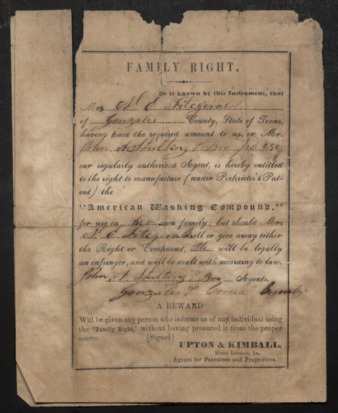 FAMILY RIGHT.
Be it known by this Instrument, that
Mrs N. C. Fitzgerald
of Gonzales County, State of Texas,
having paid the required amount to us, or Mr.
John A.
our regularly authorized Agent, is hereby entitled
to the right to manufacture (under Proprietor's Pat-
ent) the
"American Washing Compound,"
for use in own family, but should Mrs
N. C. Fitzgerald sell or give away either
the Right or Compound, She will be legally
an infringer, and will be dealt with according to law.
John A. & Bro Agents
Gonzales County
A REWARD
Will be given any person who informs us of any individual using
the "Family Right," without having procured it from the proper
source. [Signed]
UPTON & KIMBALL,
Agents for Patentees and Proprietors.